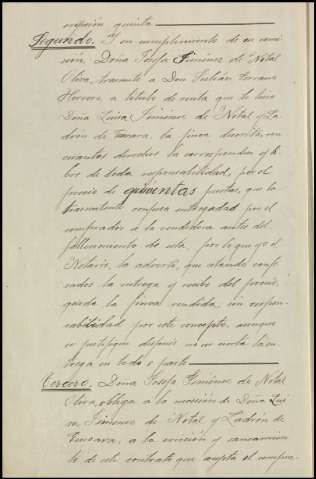 cripción quinta
Segundo. Y en cumplimiento de su comi
sión, Doña Josefa Jiménez de Notal
Oliva, trasmite a Don Julián Serrano
Herrero, a título de venta que le hizo
Doña Luisa Jiménez de Notal y La
drón de Guevara, la finca descrita, con
cuantos derechos la correspondan y li
bre de toda responsabilidad, por el
precio de quinientas pesetas, que la
trasmitente confiesa entregadas por el
comprador a la vendedora antes del
fallecimiento de esta, por lo que yo el
Notario, la advertí, que estando confe
sados la entrega y recibo del precio,
queda la finca vendida, sin respon
sabilidad por este concepto, aunque
se justifique después no ser cierta la en
trega en todo o parte
Tercero. Doña Josefa Jiménez de Notal
Oliva, obliga a la sucesión de Doña Lui
sa Jiménez de Notal y Ladrón de
Guevara, a la evicción y saneamien
to de este contrato que acepta el compra